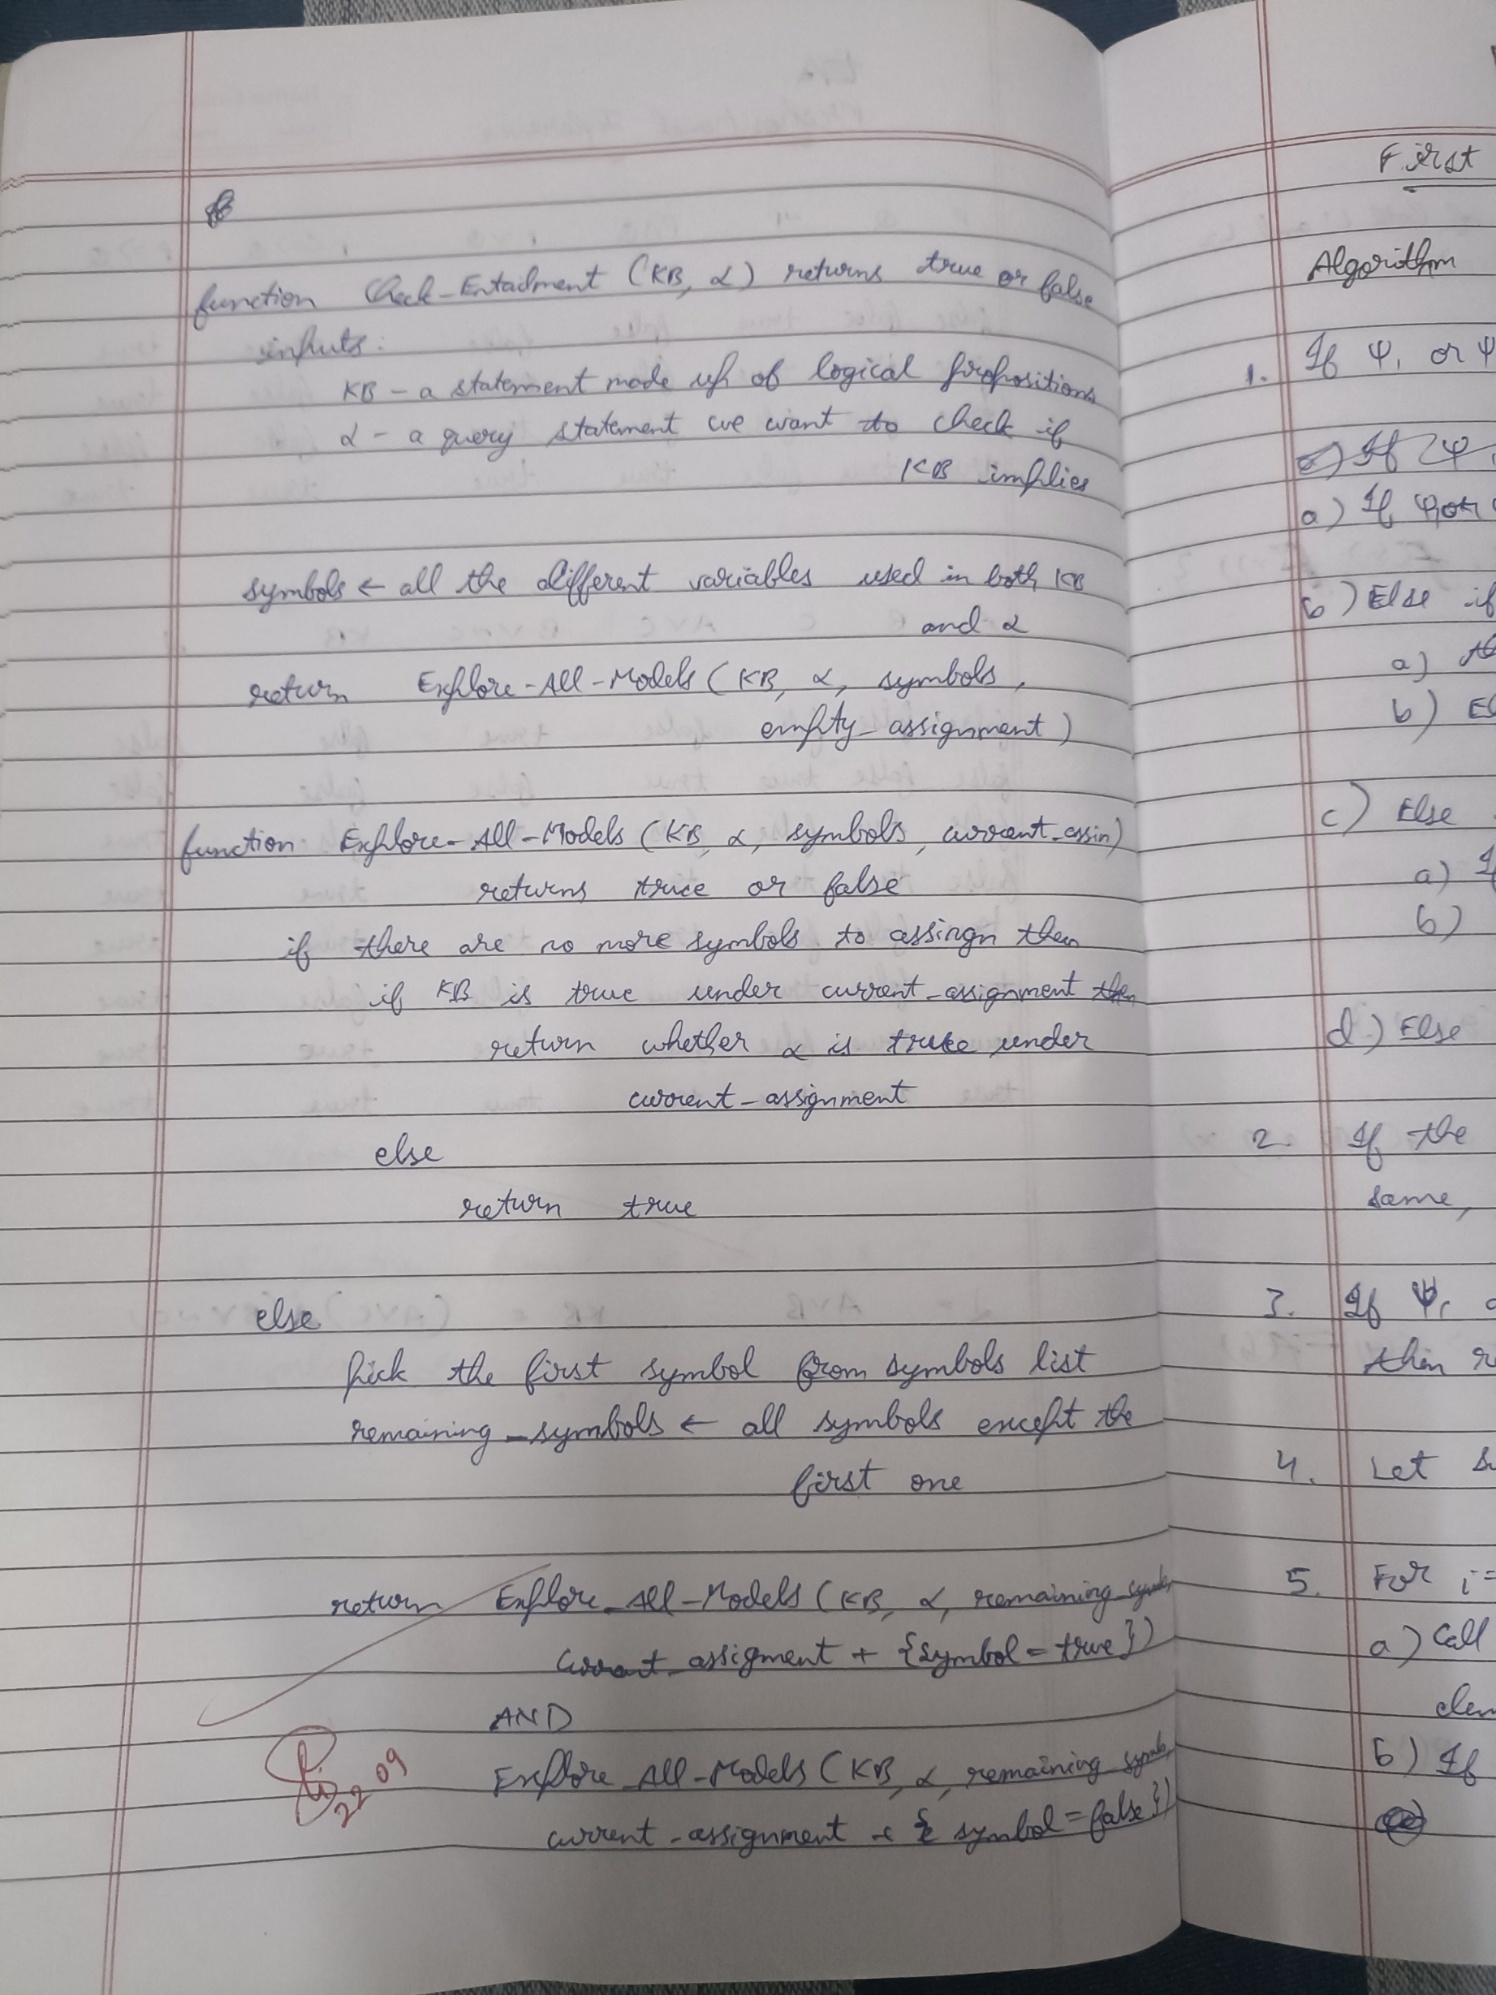 function Check-Entailment (KB, α) returns true or false
inputs:
KB - a statement made up of logical propositions
α - a query statement we want to check if
KB implies
symbols ← all the different variables used in both KB
and α
return Explore-All-Models (KB, α, symbols,
empty_assignment)
function Explore-All-Models (KB, α, symbols, current_assin)
returns true or false
if there are no more symbols to assingn then
if KB is true under current_assignment then
return whether α is true under
current_assignment
else
return true
else
pick the first symbol from symbols list
remaining_symbols ← all symbols except the
first one
return Explore_All-Models (KB, α, remaining_symbols
current_assigment + {symbol = true})
AND
Explore_All-Models (KB, α, remaining_symbols
current_assignment + { symbol = false})
22 09
First
Algorithm
1. If Ψ1 or Ψ
a) If Ψ1 or
b) Else if
a)
b)
c) Else
a)
b)
d.) Else
2. If the
same,
3. If Ψ1
then
4. Let
5. For i =
a) Call
b) If